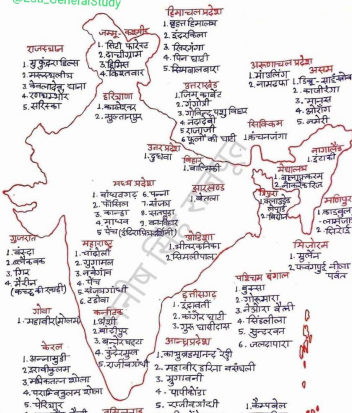 हिमाचल प्रदेश
1. वृहत हिमालय
2. इंदरकिला
3. खिरगंगा
4. पिन घाटी
5. सिमबालबारा
जम्मू-कश्मीर
1. सिटी फॉरेस्ट
2. दाचीग्राम
3. हेमिस
4. किश्तवार
राजस्थान
1. मुकुन्दरा हिल्स
2. मरुस्थलीय
3. केवलादेव, घाना
4. रणथम्भौर
5. सरिस्का
हरियाणा
1. कालेसर
2. सुल्तानपुर
उत्तराखंड
1. जिम कार्बेट
2. गंगोत्री
3. गोविन्द पशु विहार
4. नंदादेवी
5. राजाजी
6. फूलों की घाटी
अरुणाचल प्रदेश
1. माउलिंग
2. नामदफा
असम
1. डिब्रू-साईखोवा
2. काजीरंगा
3. मानस
4. ओरांग
5. नमेरी
सिक्किम
1. कंचनजंगा
उत्तर प्रदेश
1. दुधवा
बिहार
1. वाल्मिकी
नागालैंड
1. इंटाकी
मेघालय
त्रिपुरा
मणिपुर
मिजोरम
1. मुर्लेन
2. फवंगपुई नीला पर्वत
मध्य प्रदेश
1. बांधवगढ़
2. फॉसिल
3. कान्हा
4. माधव
5. पेंच
6. पन्ना
7. संजय
8. सतपुड़ा
झारखण्ड
1. बेतला
गुजरात
1. वंस्दा
3. गिर
4. मैरीन
(कच्छ की खाड़ी)
महाराष्ट्र
1. चांदोली
2. गुगामल
3. नवेगांव
4. पेंच
5. संजय गांधी
6. टडोबा
ओडिशा
1. भीतरकनिका
2. सिमलीपाल
छत्तीसगढ़
1. इंद्रावती
2. कांगेर घाटी
3. गुरु घासीदास
पश्चिम बंगाल
1. बुक्सा
2. गोरूमारा
3. नेओरा वैली
4. सिंगलीला
5. सुन्दरवन
6. जलदापारा
गोवा
1. महावीर (मोलेम)
कर्नाटक
1. अंशी
2. बांदीपुर
3. बन्नेरघट्टा
4. कुंद्रेमुख
5. राजीव गांधी
केरल
1. अन्नामुडी
2. इराविकुलम
3. मथिकेत्तन शोला
4. पराम्बिकुलम शोला
5. पेरियार
आन्ध्र प्रदेश
2. महावीर हरिना वनस्थली
3. मुगावनी
4. पापीकोंडा
5. राजीव गांधी
तमिलनाडु
1. कैम्पबेल